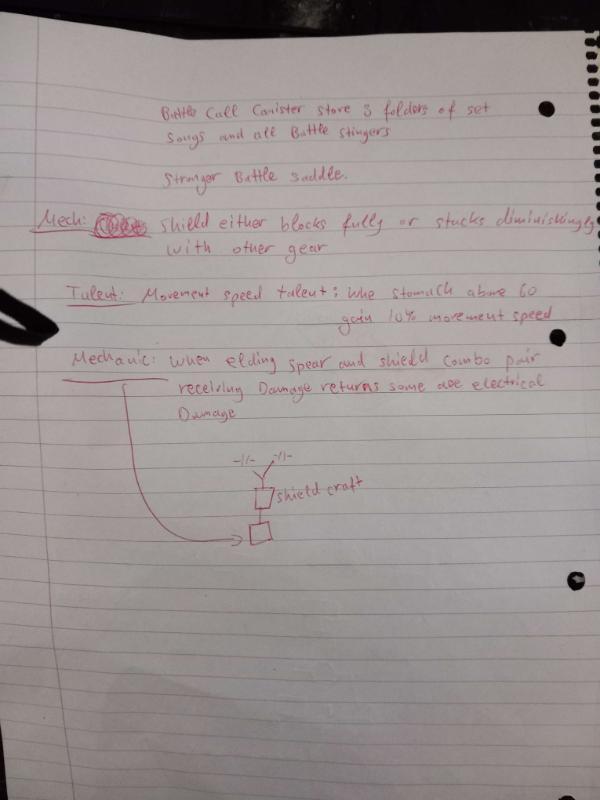 Battle Call Canister store 3 folders of set
songs and all Battle stingers
Stronger Battle saddle.
Mech: shield either blocks fully or stacks diminishingly
with other gear
Talent: Movement speed talent: Whe stomach above 60
gain 10% movement speed
Mechanic: when elding spear and shield combo pair
receiving Damage returns some aoe electrical
Damage
-//- -//-
shield craft